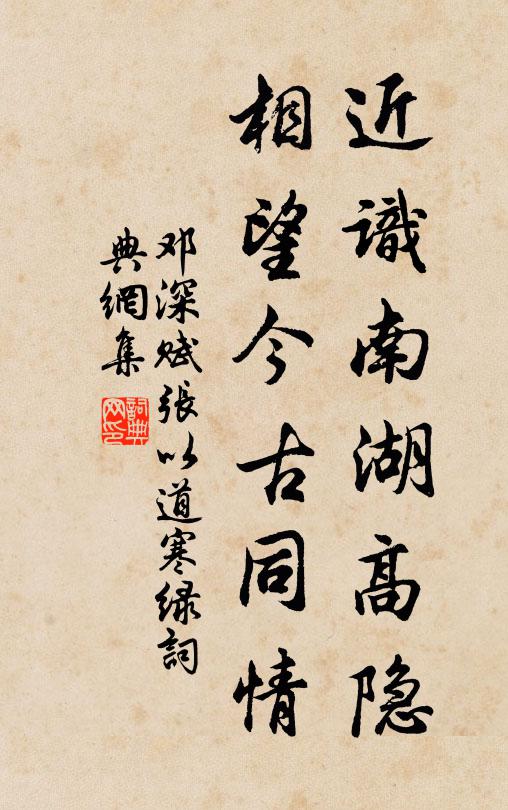 近識南湖高隐
相望今古同情
邓深賦張以道寒绿詞
典網集
詞典网印